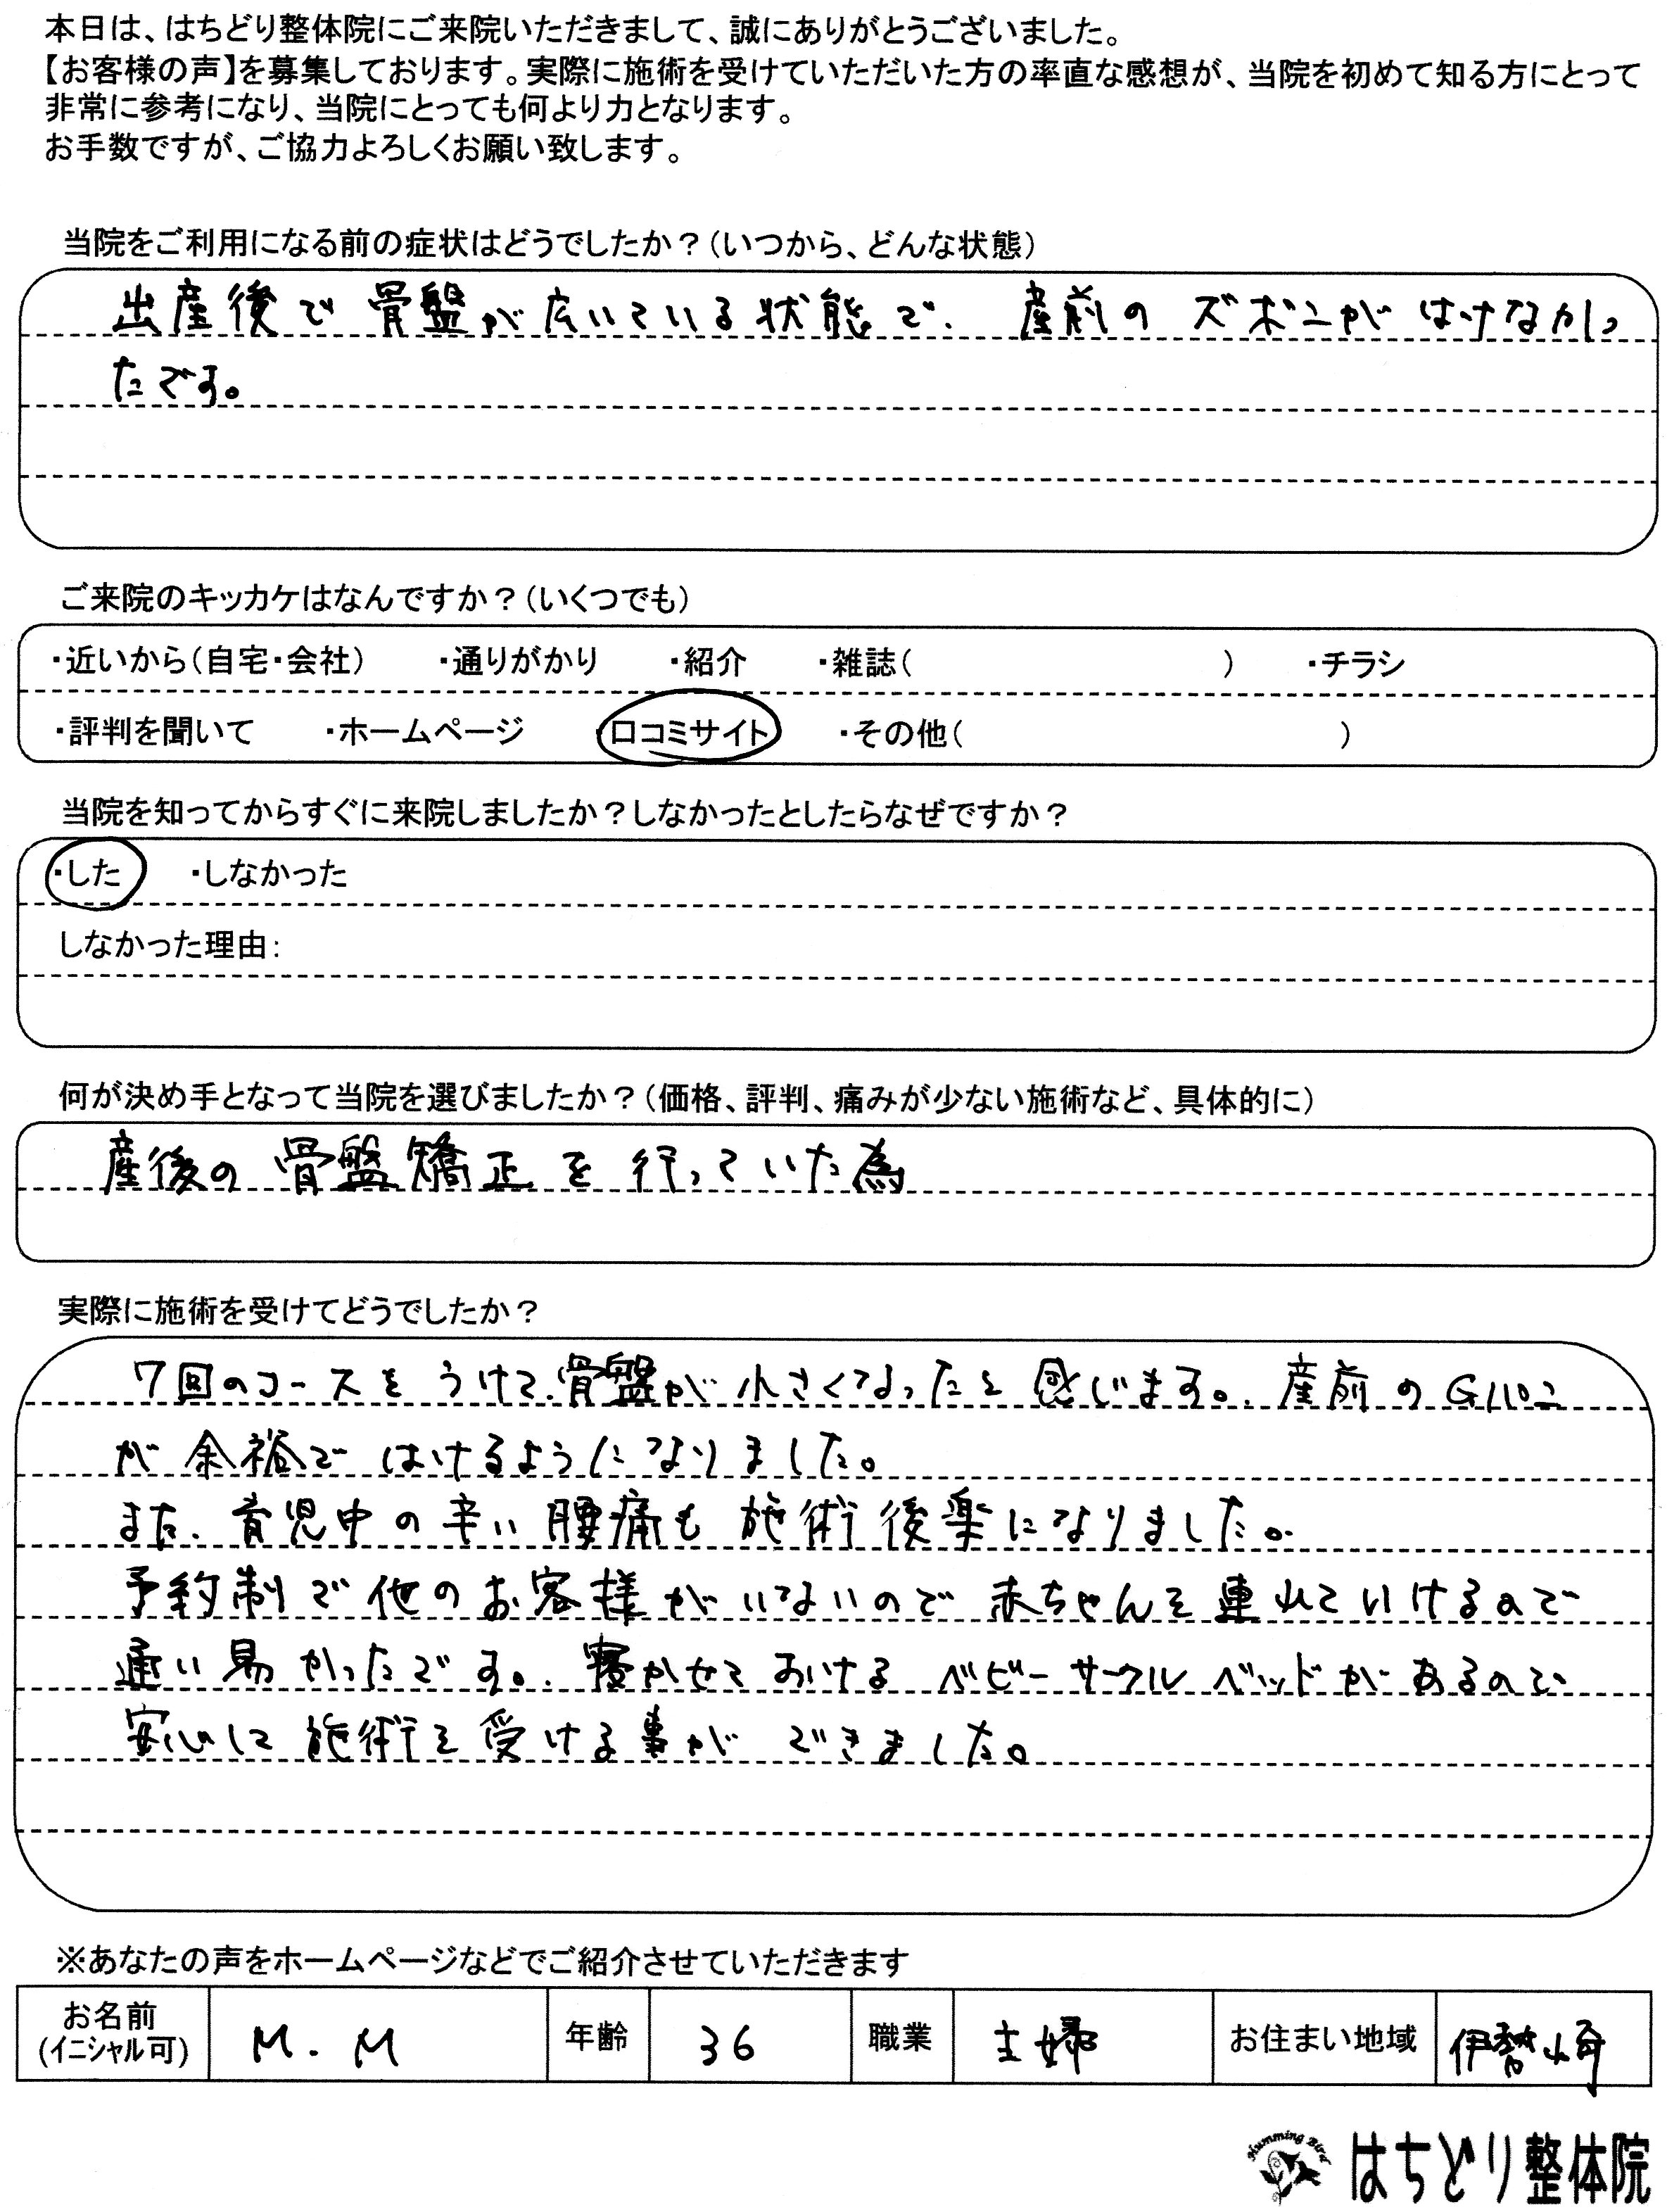 本日は、はちどり整体院にご来院いただきまして、誠にありがとうございました。
【お客様の声】を募集しております。実際に施術を受けていただいた方の率直な感想が、当院を初めて知る方にとって
非常に参考になり、当院にとっても何より力となります。
お手数ですが、ご協力よろしくお願い致します。
当院をご利用になる前の症状はどうでしたか？（いつから、どんな状態）
出産後で骨盤が広いている状態で、産前のズボンがはけなかっ
たです。
ご来院のキッカケはなんですか？（いくつでも）
・近いから（自宅・会社） ・通りがかり ・紹介 ・雑誌（ ） ・チラシ
・評判を聞いて ・ホームページ ・口コミサイト ・その他（ ）
当院を知ってからすぐに来院しましたか？しなかったとしたらなぜですか？
・した ・しなかった
しなかった理由：
何が決め手となって当院を選びましたか？（価格、評判、痛みが少ない施術など、具体的に）
産後の骨盤矯正を行っていた為
実際に施術を受けてどうでしたか？
7回のコースをうけて、骨盤が小さくなったと感じます。産前のGパン
が余裕ではけるようになりました。
また、育児中の辛い腰痛も施術後楽になりました。
予約制で他のお客様がいないので赤ちゃんを連れていけるので
通い易かったです。寝かせておけるベビーサークルベッドがあるので
安心して施術を受ける事ができました。
※あなたの声をホームページなどでご紹介させていただきます
お名前 (イニシャル可) M.M 年齢 36 職業 主婦 お住まい地域 伊勢崎
Humming Bird はちどり整体院